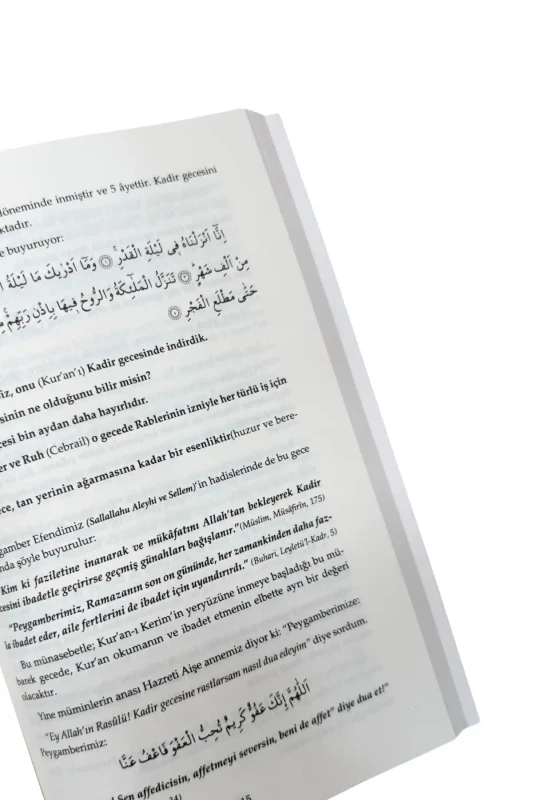 döneminde inmiştir ve 5 âyettir. Kadir gecesini
ktadır.
e buyuruyor:
اِنَّٓا اَنْزَلْنَاهُ ف۪ي لَيْلَةِ الْقَدْرِۚ ﴿١﴾ وَمَٓا اَدْرٰيكَ مَا لَيْلَةُ
مِنْ اَلْفِ شَهْرٍۜ ﴿٣﴾ تَنَزَّلُ الْمَلٰٓئِكَةُ وَالرُّوحُ ف۪يهَا بِاِذْنِ رَبِّهِمْۚ
حَتّٰى مَطْلَعِ الْفَجْرِ ﴿٥﴾
iz, onu (Kur'an'ı) Kadir gecesinde indirdik.
sinin ne olduğunu bilir misin?
esi bin aydan daha hayırlıdır.
er ve Ruh (Cebrail) o gecede Rablerinin izniyle her türlü iş için
ece, tan yerinin ağarmasına kadar bir esenliktir(huzur ve bere-
gamber Efendimiz (Sallallahu Aleyhi ve Sellem)'in hadislerinde de bu gece
nda şöyle buyurulur:
Kim ki faziletine inanarak ve mükâfatını Allah'tan bekleyerek Kadir
cesini ibadetle geçirirse geçmiş günahları bağışlanır."(Müslim, Müsâfirîn, 175)
"Peygamberimiz, Ramazanın son on gününde, her zamankinden daha faz-
la ibadet eder, aile fertlerini de ibadet için uyandırırdı." (Buhari, Leyletü'l-Kadr, 5)
Bu münasebetle; Kur'an-ı Kerim'in yeryüzüne inmeye başladığı bu mü-
barek gecede, Kur'an okumanın ve ibadet etmenin elbette ayrı bir değeri
olacaktır.
Yine müminlerin anası Hazreti Aişe annemiz diyor ki: "Peygamberimize:
"Ey Allah'ın Rasûlü! Kadir gecesine rastlarsam nasıl dua edeyim" diye sordum.
Peygamberimiz:
اَللّٰهُمَّ اِنَّكَ عَفُوٌّ كَرِيمٌ تُحِبُّ الْعَفْوَ فَاعْفُ عَنَّا
! Sen affedicisin, affetmeyi seversin, beni de affet" diye dua et!"
34)
15